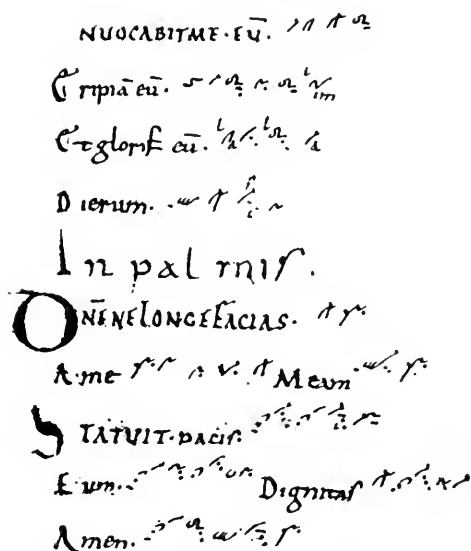 NUOCABITME·EŪ.
Eripiā eū.
Et glorif eū.
Dierum.
In palmis.
DN̄ENELONGEFACIAS.
A·me Meum
STATUIT·pacis.
Eum. Dignitas
Amen.